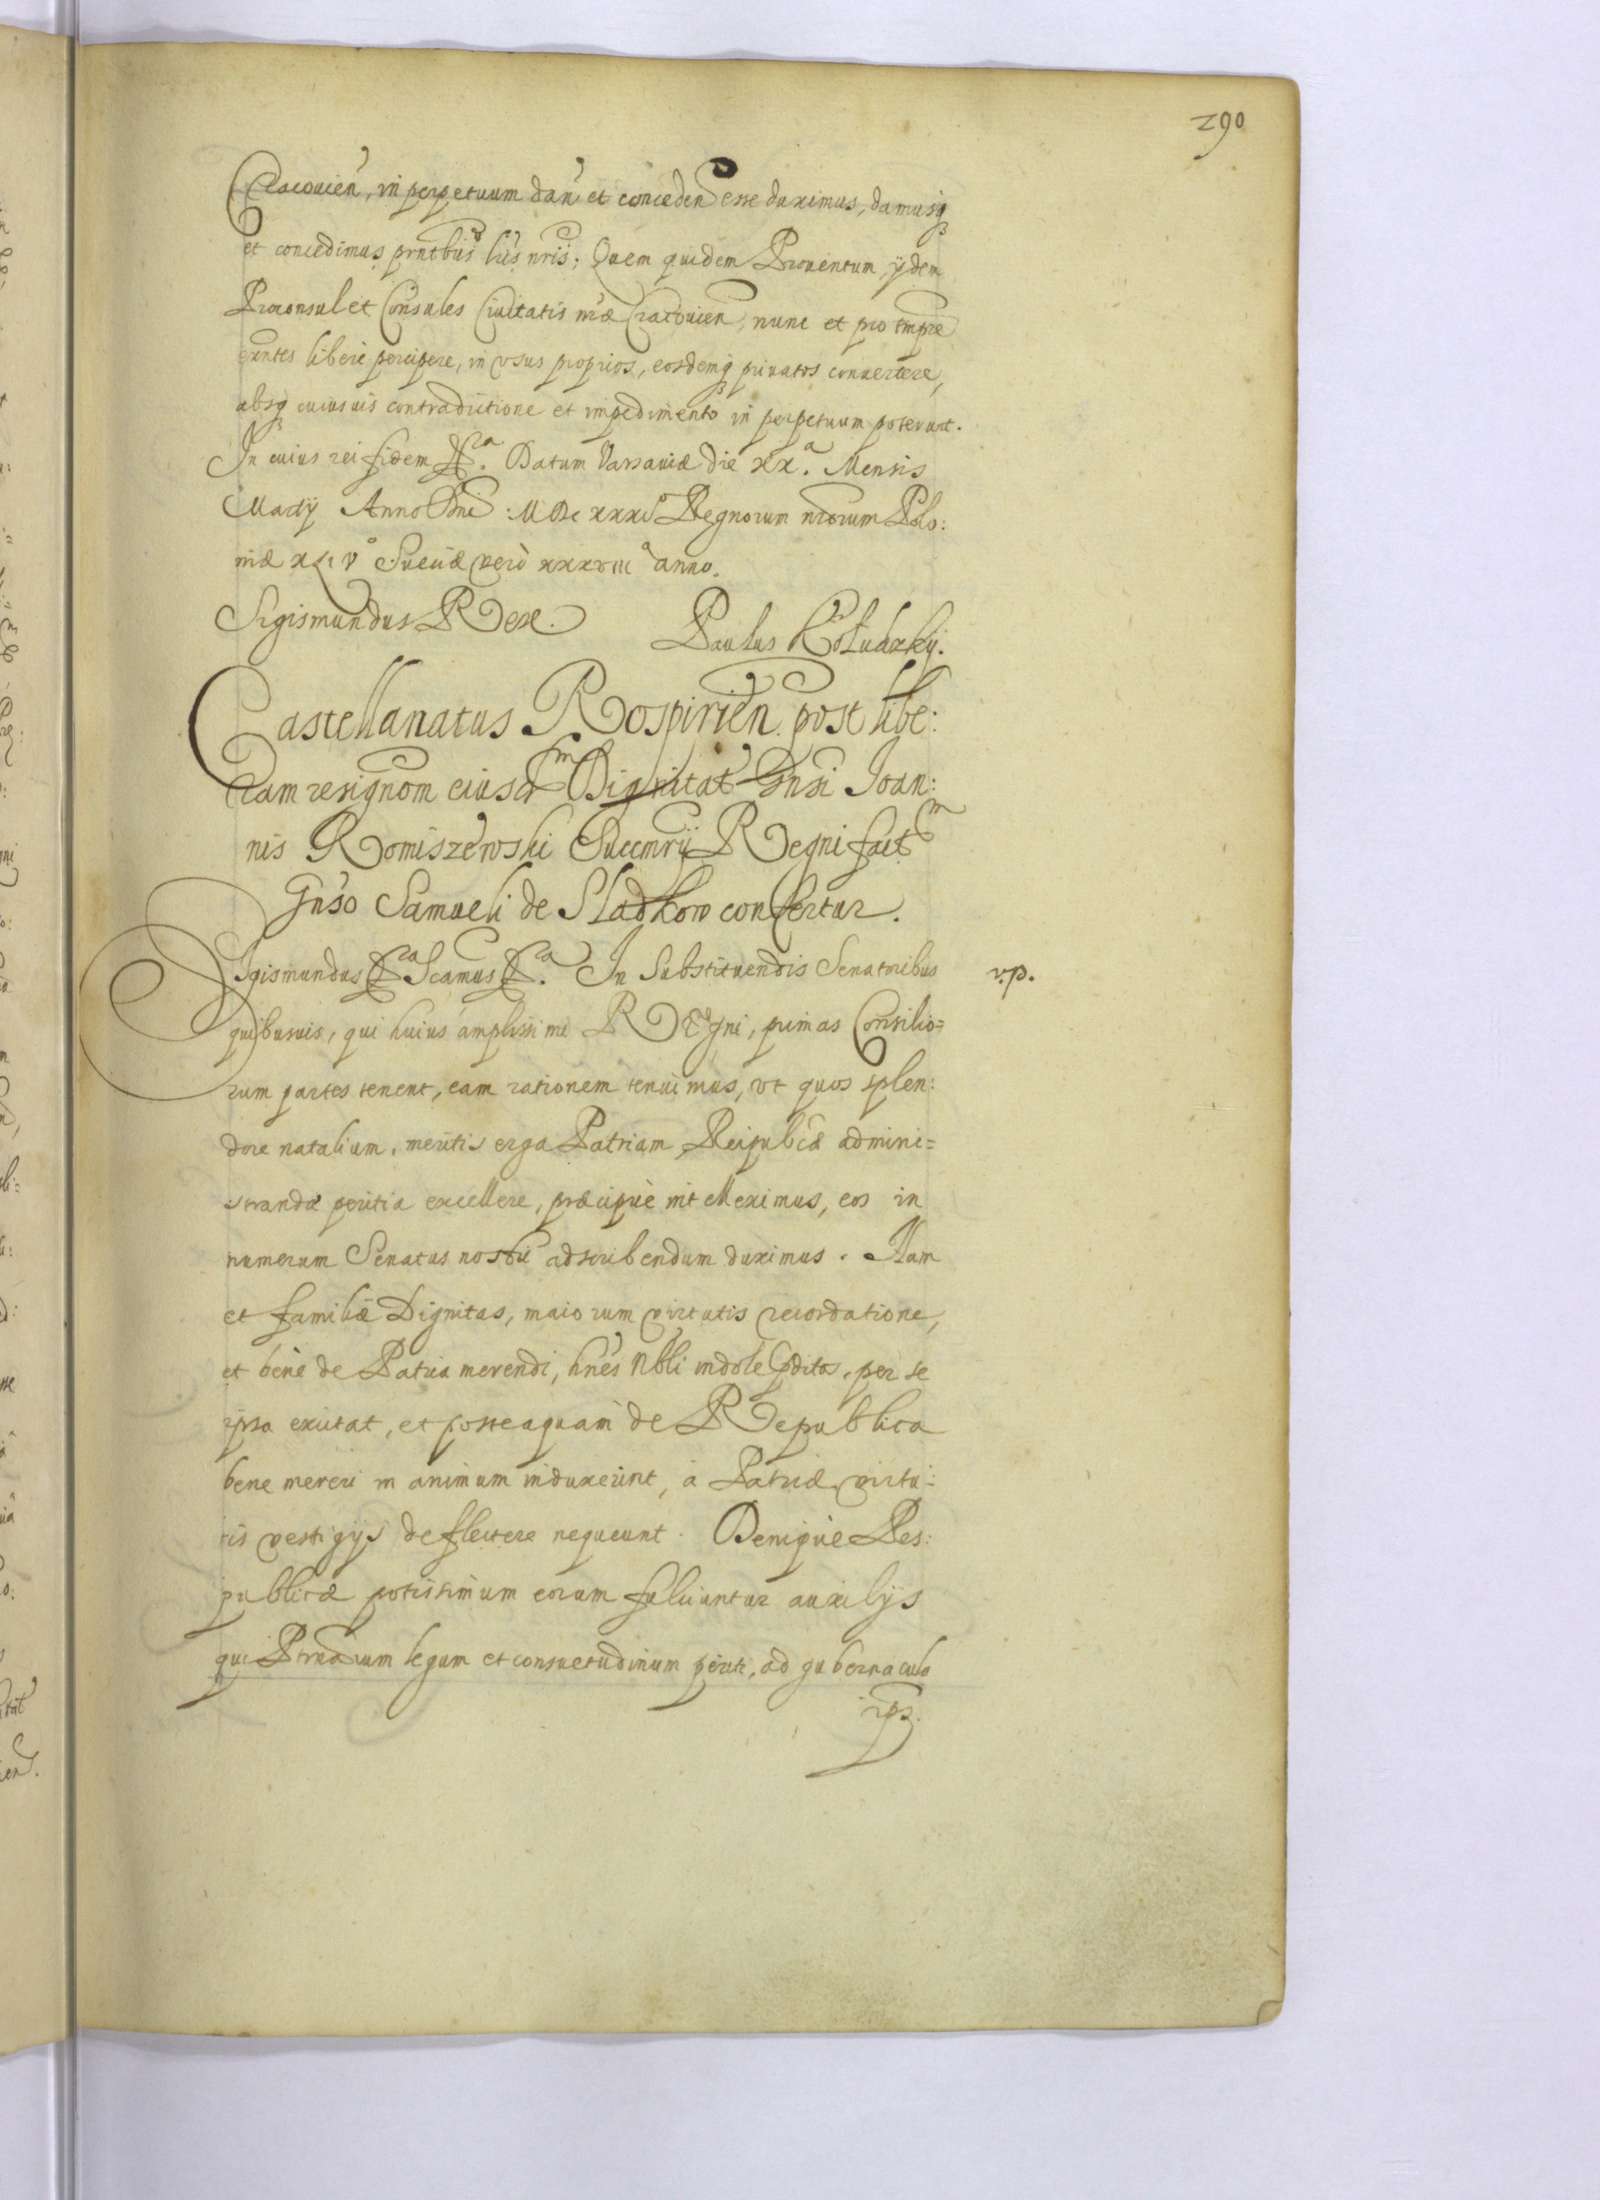 290
Cracouien, in perpetuum dan et conceden esse duximus, damusq
et concedimus prntbus lris nris; Quem quidem Prouentum ijdem
Proconsul et Consules Ciuitatis nræ Cracouien, nunc et pro tmpre
exntes liberè percipere, in vsus proprios, eosdemq priuatos conuertere,
absq cuiusuis contradictione et impedimento in perpetuum poterunt.
In cuius rei fidem &ca. Datum Varsauiæ die xxa. Mensis
Martij Anno Dni: MDC xxxi Regnorum nrorum Polo:
niæ xliv° Sueciæ verò xxxviii° anno.
Sigismundus Rex.
Paulus Kołudzky.
Castellanatus Rospirien. post libe:
ram resignom eiusdm Dignitat Gnsi Joan:
nis Romiszewski Succmrij Regni factm
Gnso Samueli de Sladkow confertur.
Sigismundus &ca Scamus &ca. In Substituendis Senatoribus
v.p.
quibusuis, qui huius amplissimi Regni, primas Consilio=
rum partes tenent, eam rationem tenuimus, vt quos splen:
dore natalium, meritis erga Patriam Reipubcæ admini=
strandæ peritia excellere, præcipuè intelleximus, eos in
numerum Senatus nostri adscribendum duximus. Nam
et familiæ Dignitas, maiorum virtutis recordatione,
et bene de Patria merendi, hnes Nbli indole pditos, per se
ipsa excitat, et posteaquam de Republica
bene mereri in animum induxerint, à Patriæ virtu:
tis vestigijs deflectere nequeunt. Deniquè Res:
publicæ potissimum eorum fulciuntur auxilijs
qui Ptriarum legum et consuetudinum periti, ad gubernacula
ips.